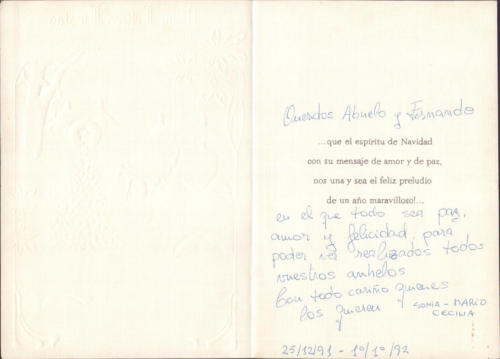 Queridos Abuelo y Fernando
...que el espíritu de Navidad
con su mensaje de amor y de paz,
nos una y sea el feliz preludio
de un año maravilloso!...
en el que todo sea paz,
amor y felicidad, para
poder ver realizados todos
nuestros anhelos
Con todo cariño quienes
los quieren
SONIA - MARIO
CECILIA
25/12/91 - 1º/1º/92